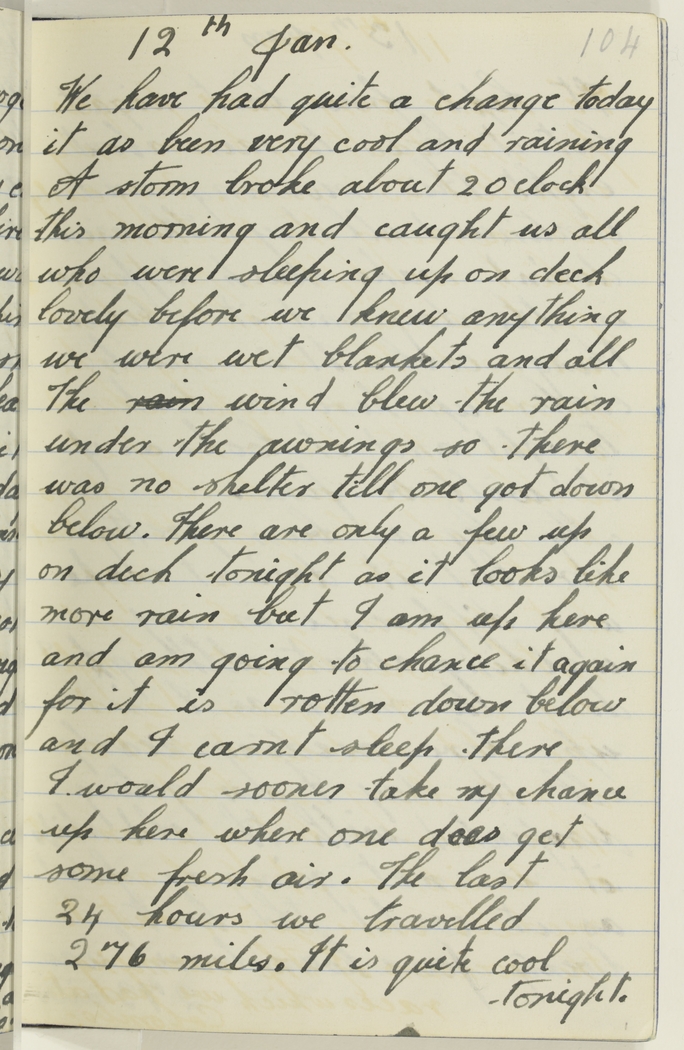 12th Jan.
104
We have had quite a change today
it as been very cool and raining
A storm broke about 2 Oclock
this morning and caught us all
who were sleeping up on deck
lovely before we knew anything
we were wet blankets and all
The rain wind blew the rain
under the awnings so there
was no shelter till one got down
below. There are only a few up
on deck tonight as it looks like
more rain but I am up here
and am going to chance it again
for it is rotten down below
and I carnt sleep there
I would sooner take my chance
up here where one does get
some fresh air. The last
24 hours we travelled
276 miles. It is quite cool
tonight.